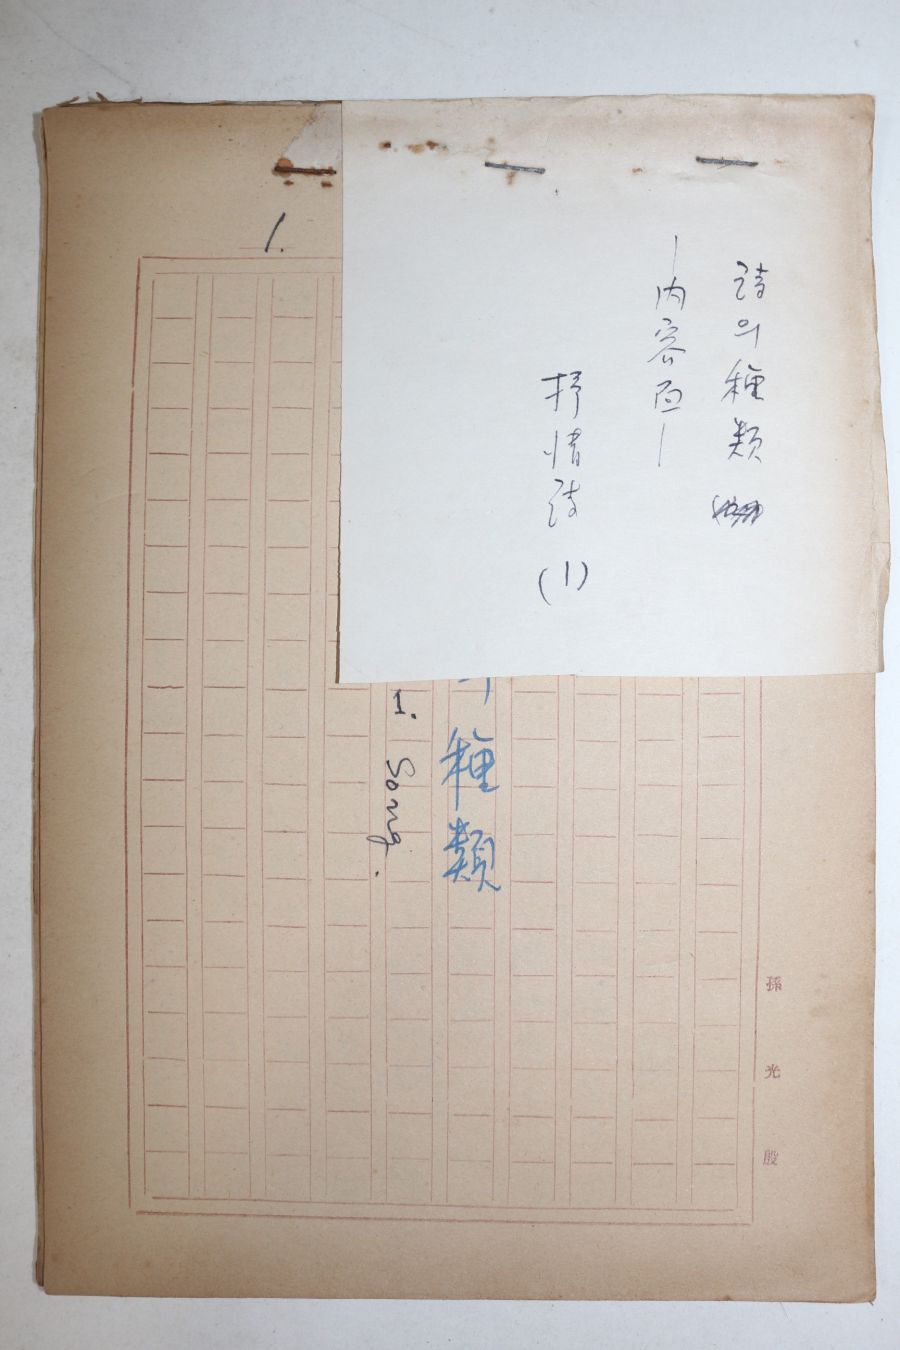 詩의 種類
―內容面―
抒情詩 (1)
1.
의 種類
1. Song.
孫光殷